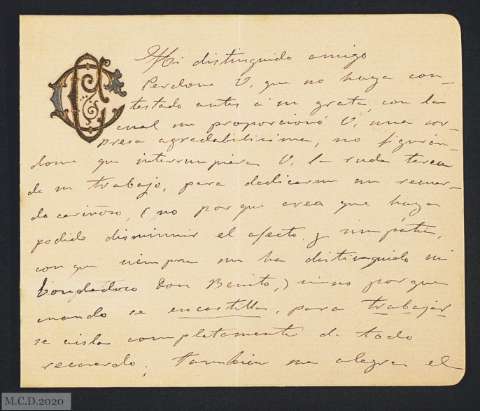 Mi distinguido amigo
Perdone V. que no haya con-
testado antes a su grata, con la
cual me proporcionó V. una sor-
presa agradabilisima, no figurán-
dome que interrumpiera V. la ruda tarea
de su trabajo, para dedicarme un recuer-
do cariñoso, (no por que crea que haya
podido disminuir el afecto y simpatía,
con que siempre me ha distinguido mi
bondadoso Don Benito,) sino porque
cuando se encastilla, para trabajar
se aisla completamente de todo
recuerdo; tambien me alegra el
M.C.D.2020